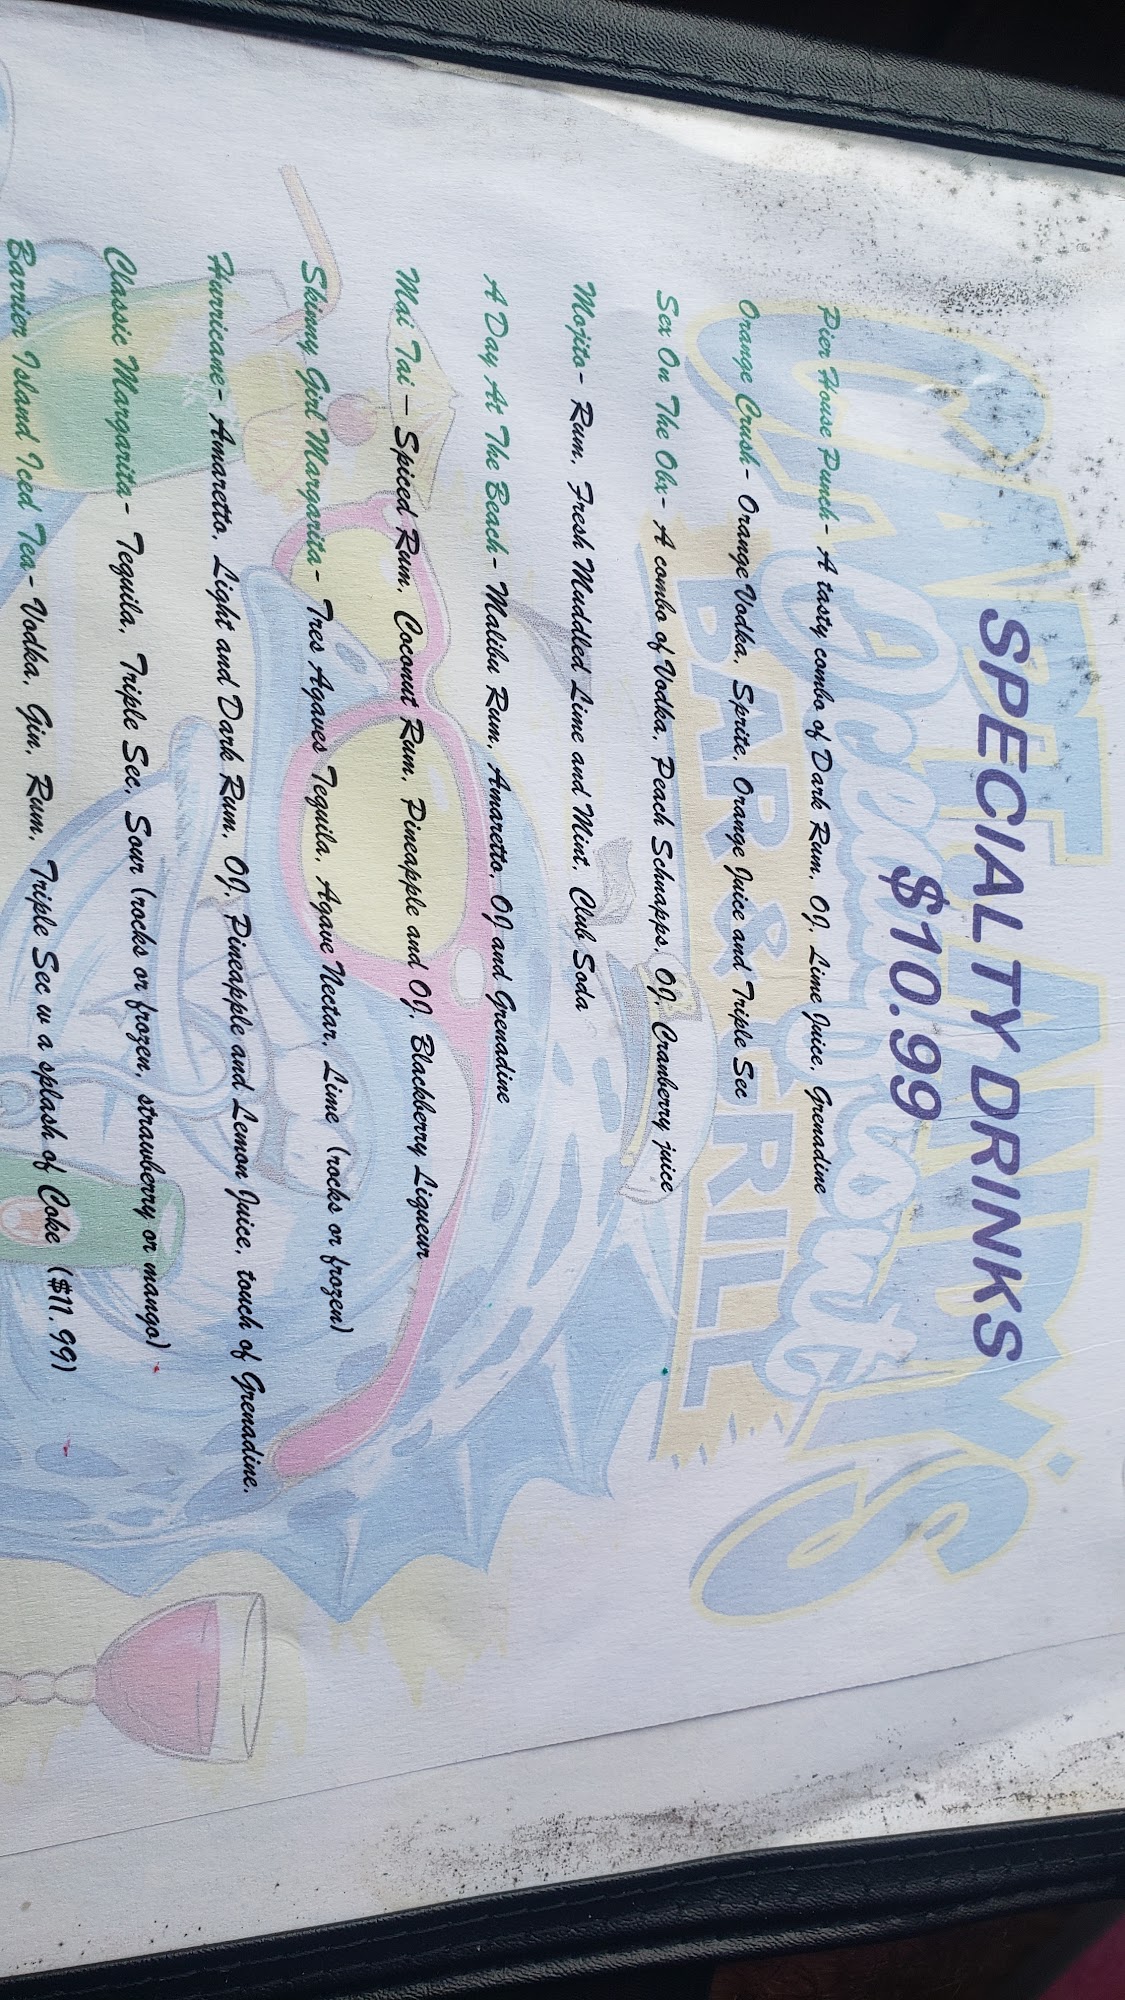 CAPT ANDY'S
Oceanfront
BAR & GRILL
SPECIALTY DRINKS
$10.99
Pier House Punch- A tasty combo of Dark Rum, OJ, Lime Juice, Grenadine
Orange Crush- Orange Vodka, Sprite, Orange Juice and Triple Sec
Sex On The Obx- A combo of Vodka, Peach Schnapps, OJ, Cranberry juice
Mojito- Rum, Fresh Muddled Lime and Mint, Club Soda
A Day At The Beach- Malibu Rum, Amaretto, OJ and Grenadine
Mai Tai – Spiced Rum, Coconut Rum, Pineapple and OJ, Blackberry Liqueur
Skinny Girl Margarita- Tres Agaves Tequila, Agave Nectar, Lime (rocks or frozen)
Hurricane- Amaretto, Light and Dark Rum, OJ, Pineapple and Lemon Juice, touch of Grenadine.
Classic Margarita- Tequila, Triple Sec, Sour (rocks or frozen, strawberry or mango)
Barrier Island Iced Tea- Vodka, Gin, Rum, Triple Sec w a splash of Coke ($11.99)